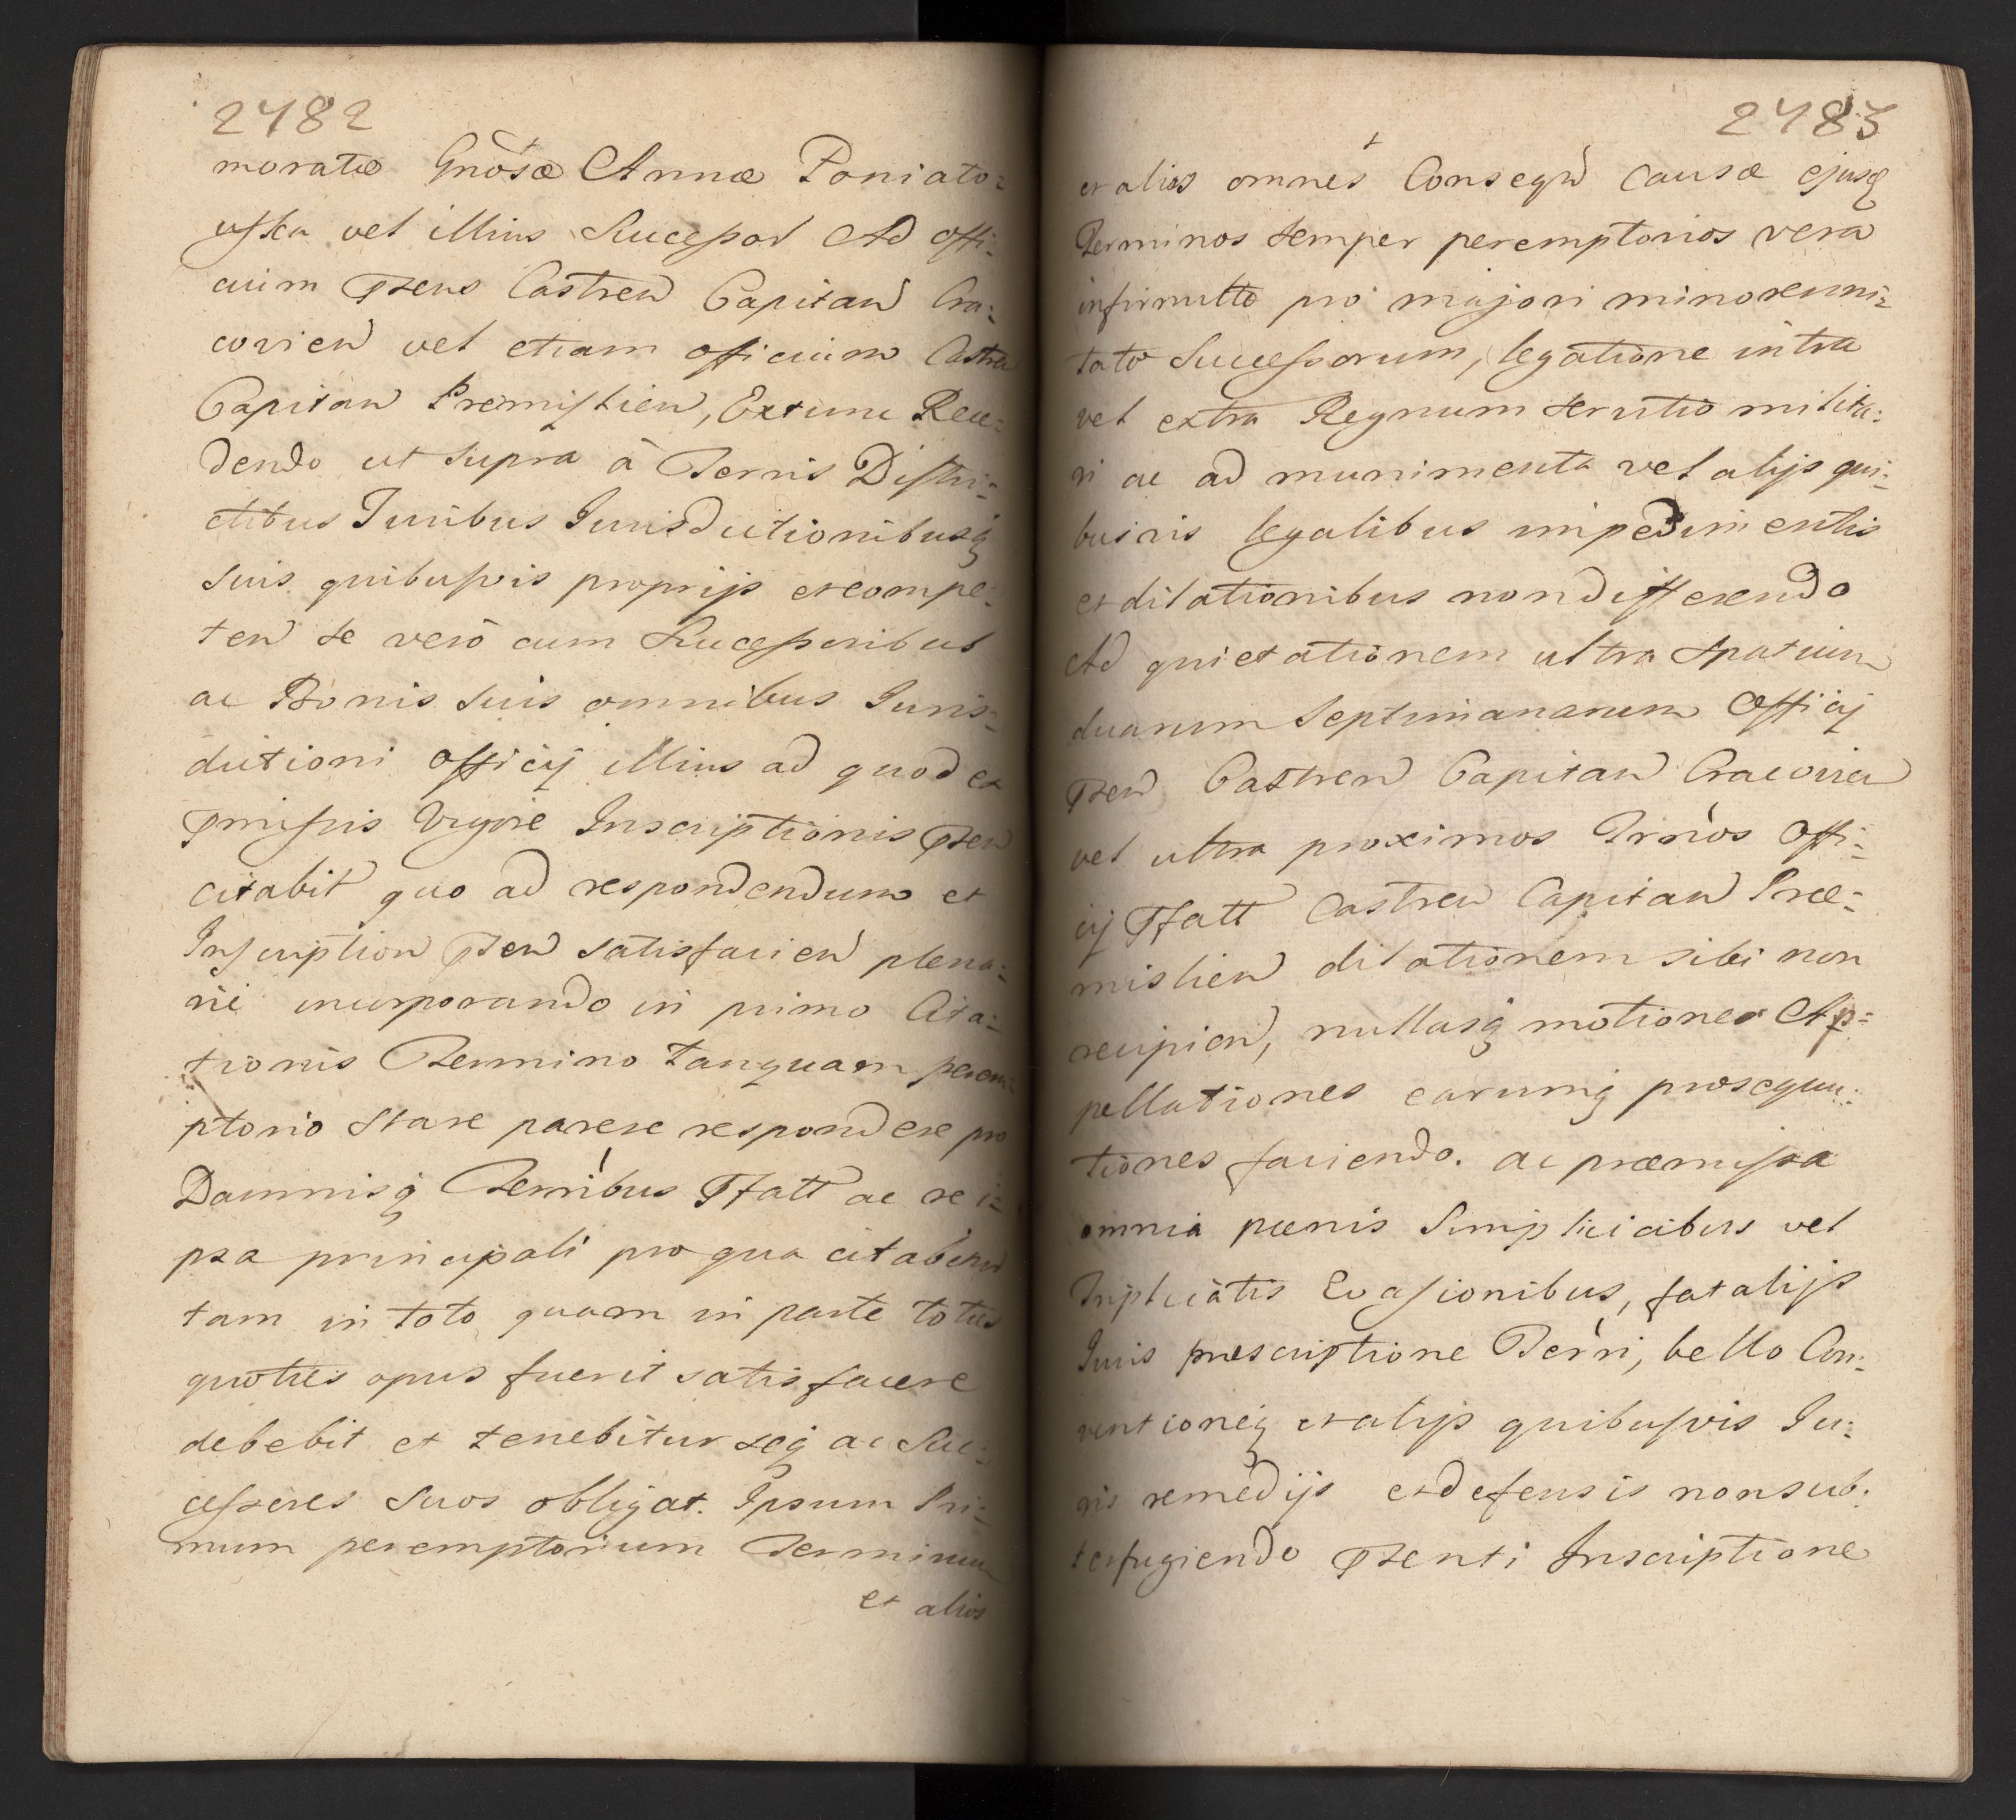 2482
moratæ Gnosæ Annæ Poniato=
wska vel illius Successor Ad offi:
cium Prens Castren Capitan Cra:
covien vel etiam officium Castren
Capitan Premislien, Extunc Rece:
dendo ut supra à Terris Distri:
ctibus Juribus Jurisdictionibusq
suis quibusvis proprijs et compe:
ten se verò cum Successoribus
ac Bonis suis omnibus Juris:
dictioni officij illius ad quod ex
Pmissis Vigore Inscriptionis Psen
citabit quo ad respondendum et
Inscription Psen satisfacien plena:
rié incorporando in primo Cita:
tionis Termino tanquam perem:
ptorio Stare parere respondere pro
Damnisq Terribus Pfatt ac re i=
psa principali pro qua citabitur
tam in toto quam in parte toties
quoties opus fuerit satisfacere
debebit et tenebitur seq ac Suc:
cessores suos obligat. Ipsum Pri:
mum peremptorium Terminum
et alios
2483
et alios omnes Conseqn causæ ejusq
Terminos semper peremptorios vera
infirmitte pro majori minorenni=
tate Successorum, legatione intra
vel extra Regnum servitio milita:
ri ac ad munimenta vel alijs qui:
busvis legalibus impedimentis
et dilationibus non differendo
Ad quietationem ultra spatium
duarum Septimanarum Officij
Psen Castren Capitan Cracovien
vel ultra proximos Trnos Offi:
cij Pfatt Castren Capitan Præ=
mislien dilationem sibi non
recipien, nullasq motiones Ap=
pellationes earumq prosequu:
tiones faciendo. ac præmissa
omnia pœnis Simplicibus vel
Triplicatis Evasionibus, fatalijs
Juris præscriptione Terri, bello Con:
ventioneq et alijs quibusvis Ju:
ris remedijs et defensis non sub:
terfugiendo Psenti Inscriptione